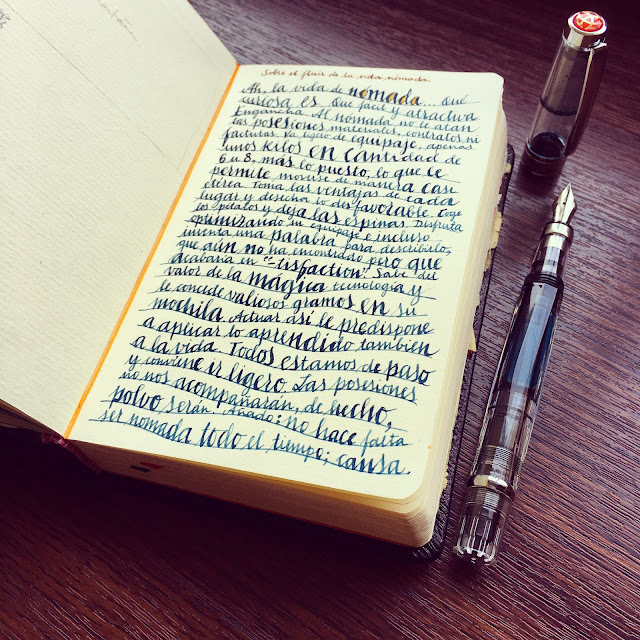 Sobre el fluir de la vida nómada.
Ah, la vida de nómada... Qué
curiosa es. Que fácil y atractiva
engancha. Al nómada no le atan
las posesiones materiales, contratos ni
facturas. Va ligero de equipaje, apenas
unos kilos en cantidad de
6 u 8, más lo puesto, lo que le
permite moverse de manera casi
etérea. Toma las ventajas de cada
lugar y desecha lo desfavorable. Coge
los pétalos y deja las espinas. Disfruta
optimizando su equipaje e incluso
inventa una palabra para describirlo,
que aún no ha encontrado pero que
acabaría en "-tisfaction". Sabe del
valor de la mágica tecnología y
le concede valiosos gramos en su
mochila. Actuar así le predispone
a aplicar lo aprendido también
a la vida. Todos estamos de paso
y conviene ir ligero. Las posesiones
no nos acompañarán, de hecho,
polvo serán. Añado: no hace falta
ser nómada todo el tiempo; cansa.